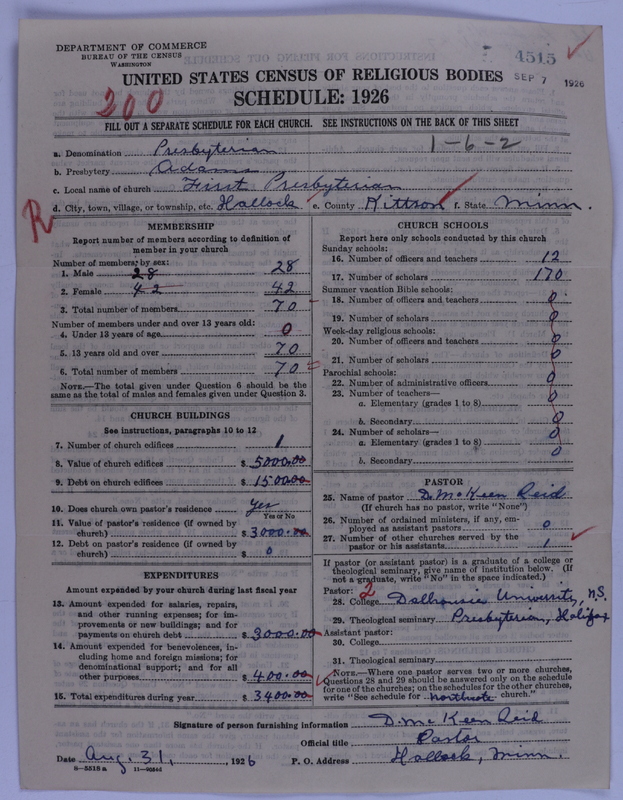 DEPARTMENT OF COMMERCE
BUREAU OF THE CENSUS
WASHINGTON
4515
SEP 7 1926
UNITED STATES CENSUS OF RELIGIOUS BODIES
SCHEDULE: 1926
200
FILL OUT A SEPARATE SCHEDULE FOR EACH CHURCH. SEE INSTRUCTIONS ON THE BACK OF THIS SHEET
1-6-2
a. Denomination Presbyterian
b. Presbytery Adams
c. Local name of church First Presbyterian
d. City, town, village, or township, etc. Hallock e. County Kittson f. State Minn.
R
MEMBERSHIP
Report number of members according to definition of
member in your church
Number of members by sex:
1. Male 28 28
2. Female 42 42
3. Total number of members 70
Number of members under and over 13 years old:
4. Under 13 years of age 0
5. 13 years old and over 70
6. Total number of members 70
NOTE.—The total given under Question 6 should be the
same as the total of males and females given under Question 3.
CHURCH BUILDINGS
See instructions, paragraphs 10 to 12
7. Number of church edifices 1
8. Value of church edifices $ 5000.00
9. Debt on church edifices $ 1500.00
10. Does church own pastor's residence Yes
Yes or No
11. Value of pastor's residence (if owned by
church) $ 3000.00
12. Debt on pastor's residence (if owned by
church) $ 0
EXPENDITURES
Amount expended by your church during last fiscal year
13. Amount expended for salaries, repairs,
and other running expenses; for im-
provements or new buildings; and for
payments on church debt $ 3000.00
14. Amount expended for benevolences, in-
cluding home and foreign missions; for
denominational support; and for all
other purposes $ 400.00
15. Total expenditures during year $ 3400.00
CHURCH SCHOOLS
Report here only schools conducted by this church
Sunday schools:
16. Number of officers and teachers 12
17. Number of scholars 170
Summer vacation Bible schools:
18. Number of officers and teachers 0
19. Number of scholars 0
Week-day religious schools:
20. Number of officers and teachers 0
21. Number of scholars 0
Parochial schools:
22. Number of administrative officers 0
23. Number of teachers—
a. Elementary (grades 1 to 8) 0
b. Secondary 0
24. Number of scholars—
a. Elementary (grades 1 to 8) 0
b. Secondary 0
PASTOR
25. Name of pastor D. McKeen Reid
(If church has no pastor, write "None")
26. Number of ordained ministers, if any, em-
ployed as assistant pastors 0
27. Number of other churches served by the
pastor or his assistants 1
If pastor (or assistant pastor) is a graduate of a college or
theological seminary, give name of institution below. (If
not a graduate, write "No" in the space indicated.)
Pastor: 2
28. College Dalhousie University, N.S.
29. Theological seminary Presbyterian, Halifax
Assistant pastor:
30. College
31. Theological seminary
NOTE.—Where one pastor serves two or more churches,
Questions 28 and 29 should be answered only on the schedule
for one of the churches; on the schedules for the other churches,
write "See schedule for Northcote church."
Signature of person furnishing information D. McKeen Reid
Official title Pastor
Date Aug. 31, 1926 P. O. Address Hallock, Minn.